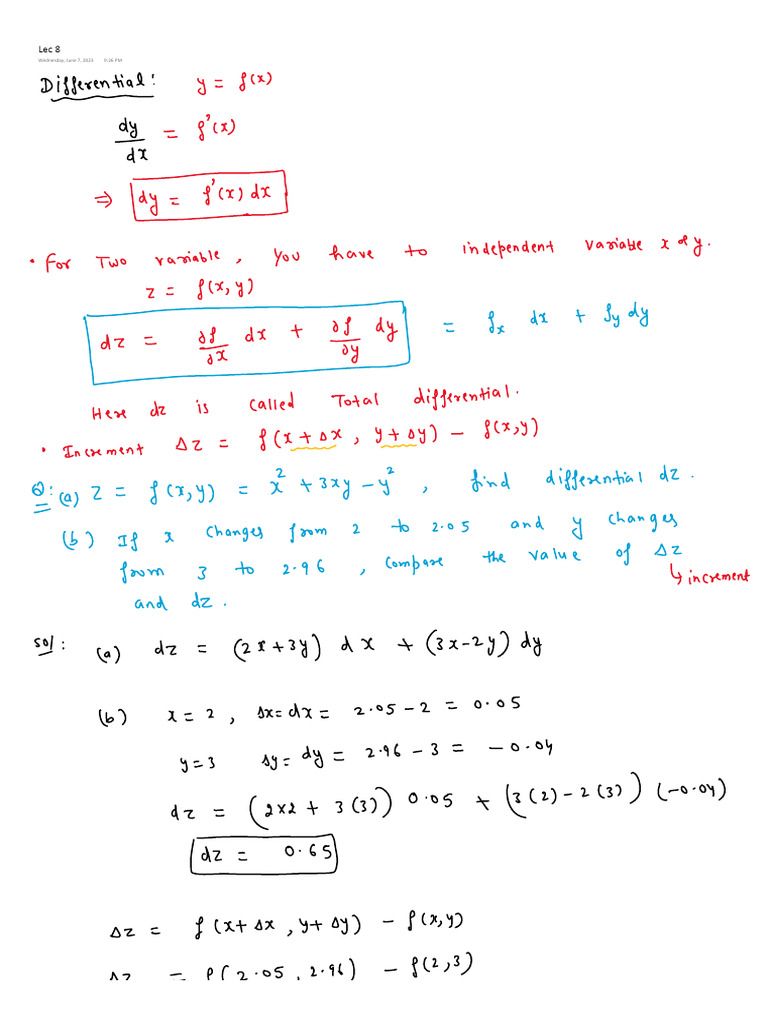 Lec 8
Wednesday, June 7, 2023 9:26 PM
Differential: y = f(x)
dy/dx = f'(x)
⇒ dy = f'(x) dx
• For Two variable, you have to independent variable x & y.
z = f(x, y)
dz = ∂f/∂x dx + ∂f/∂y dy = fx dx + fy dy
Here dz is called Total differential.
• Increment Δz = f(x + Δx, y + Δy) − f(x,y)
Q: (a) z = f(x,y) = x² + 3xy − y², find differential dz.
(b) If x changes from 2 to 2.05 and y changes
from 3 to 2.96, compare the value of Δz
↳ increment
and dz.
Sol: (a) dz = (2x+3y) dx + (3x−2y) dy
(b) x = 2, Δx = dx = 2.05 − 2 = 0.05
y = 3 Δy = dy = 2.96 − 3 = −0.04
dz = (2×2 + 3(3)) 0.05 + (3(2) − 2(3)) (−0.04)
dz = 0.65
Δz = f(x+Δx, y+Δy) − f(x,y)
Δz = f(2.05, 2.96) − f(2,3)